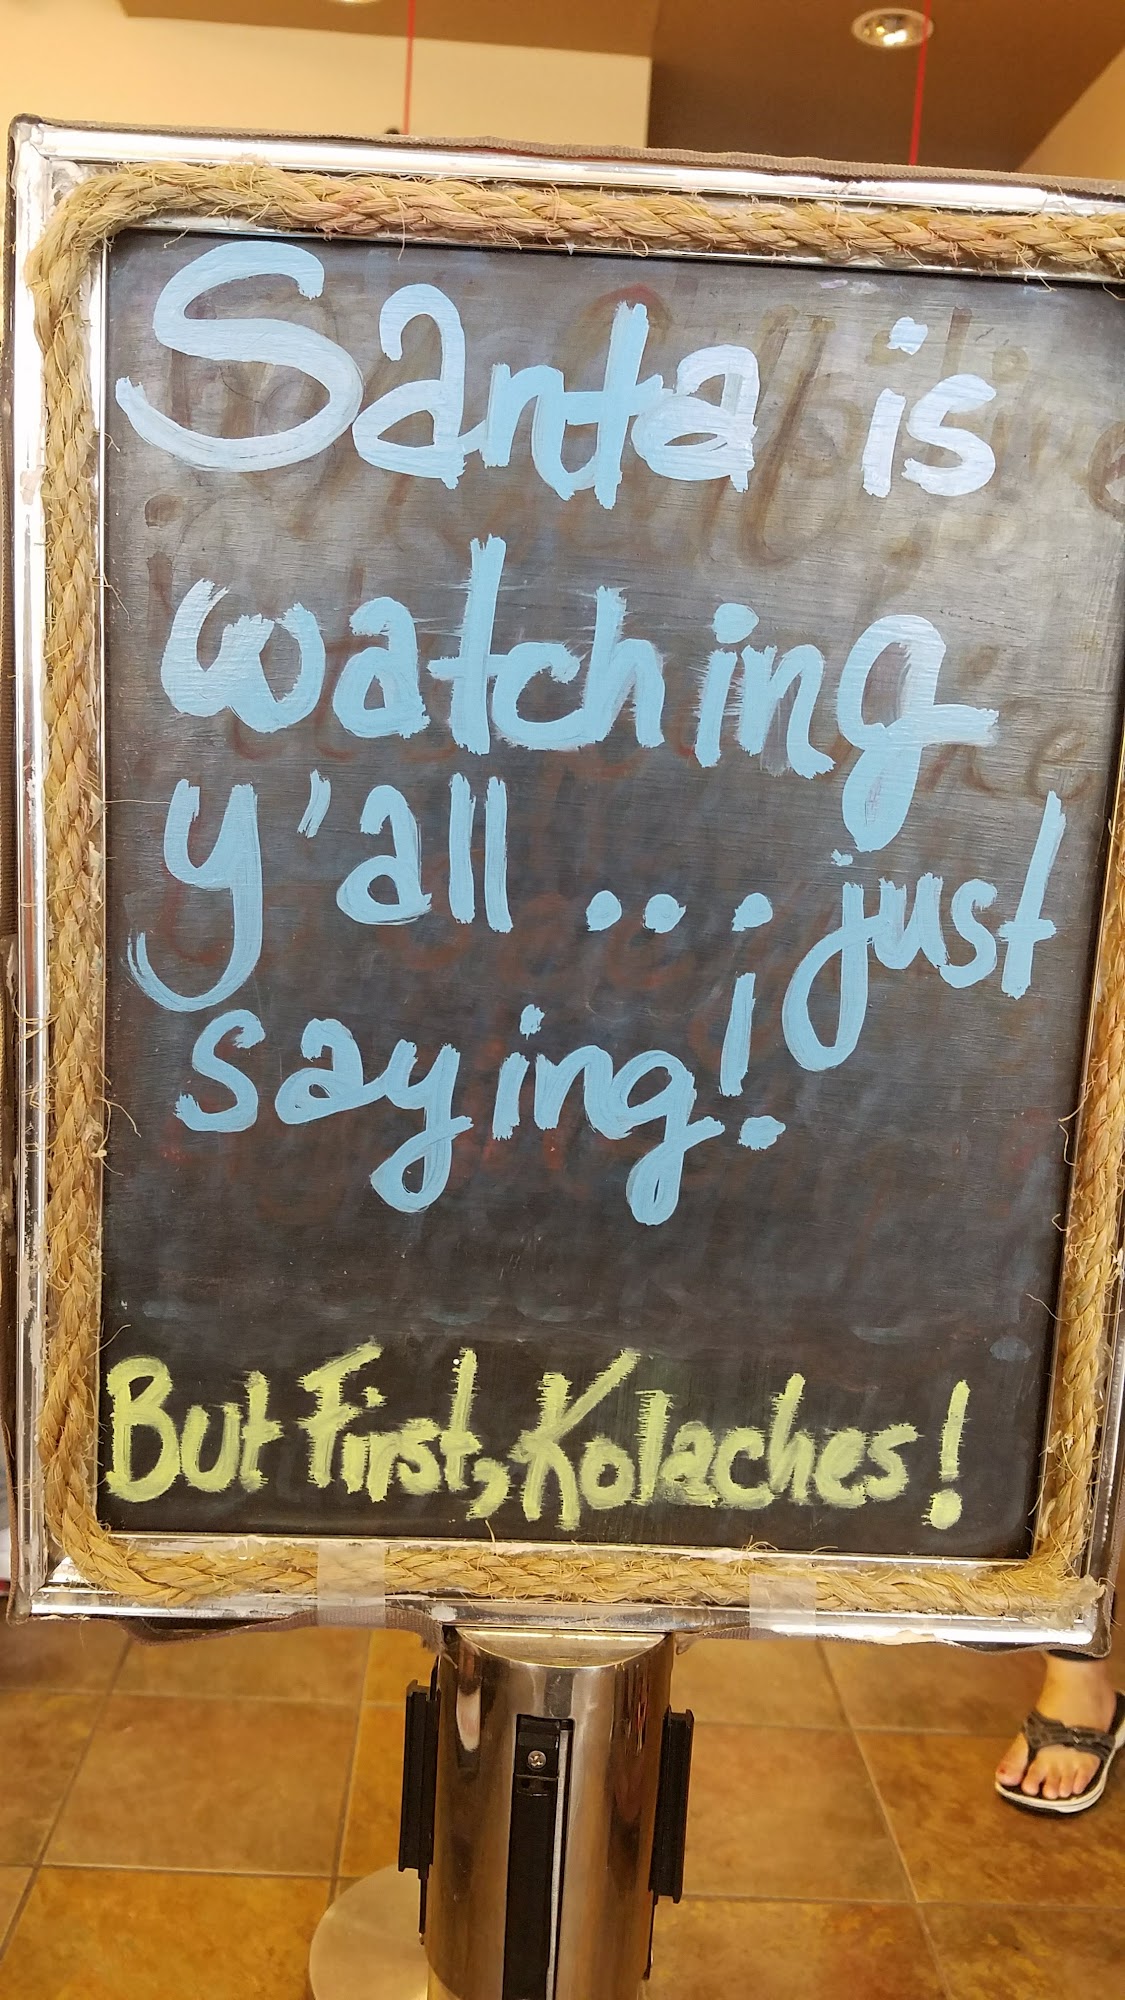 Santa is
watching
y'all... just
saying!
But First, Kolaches!